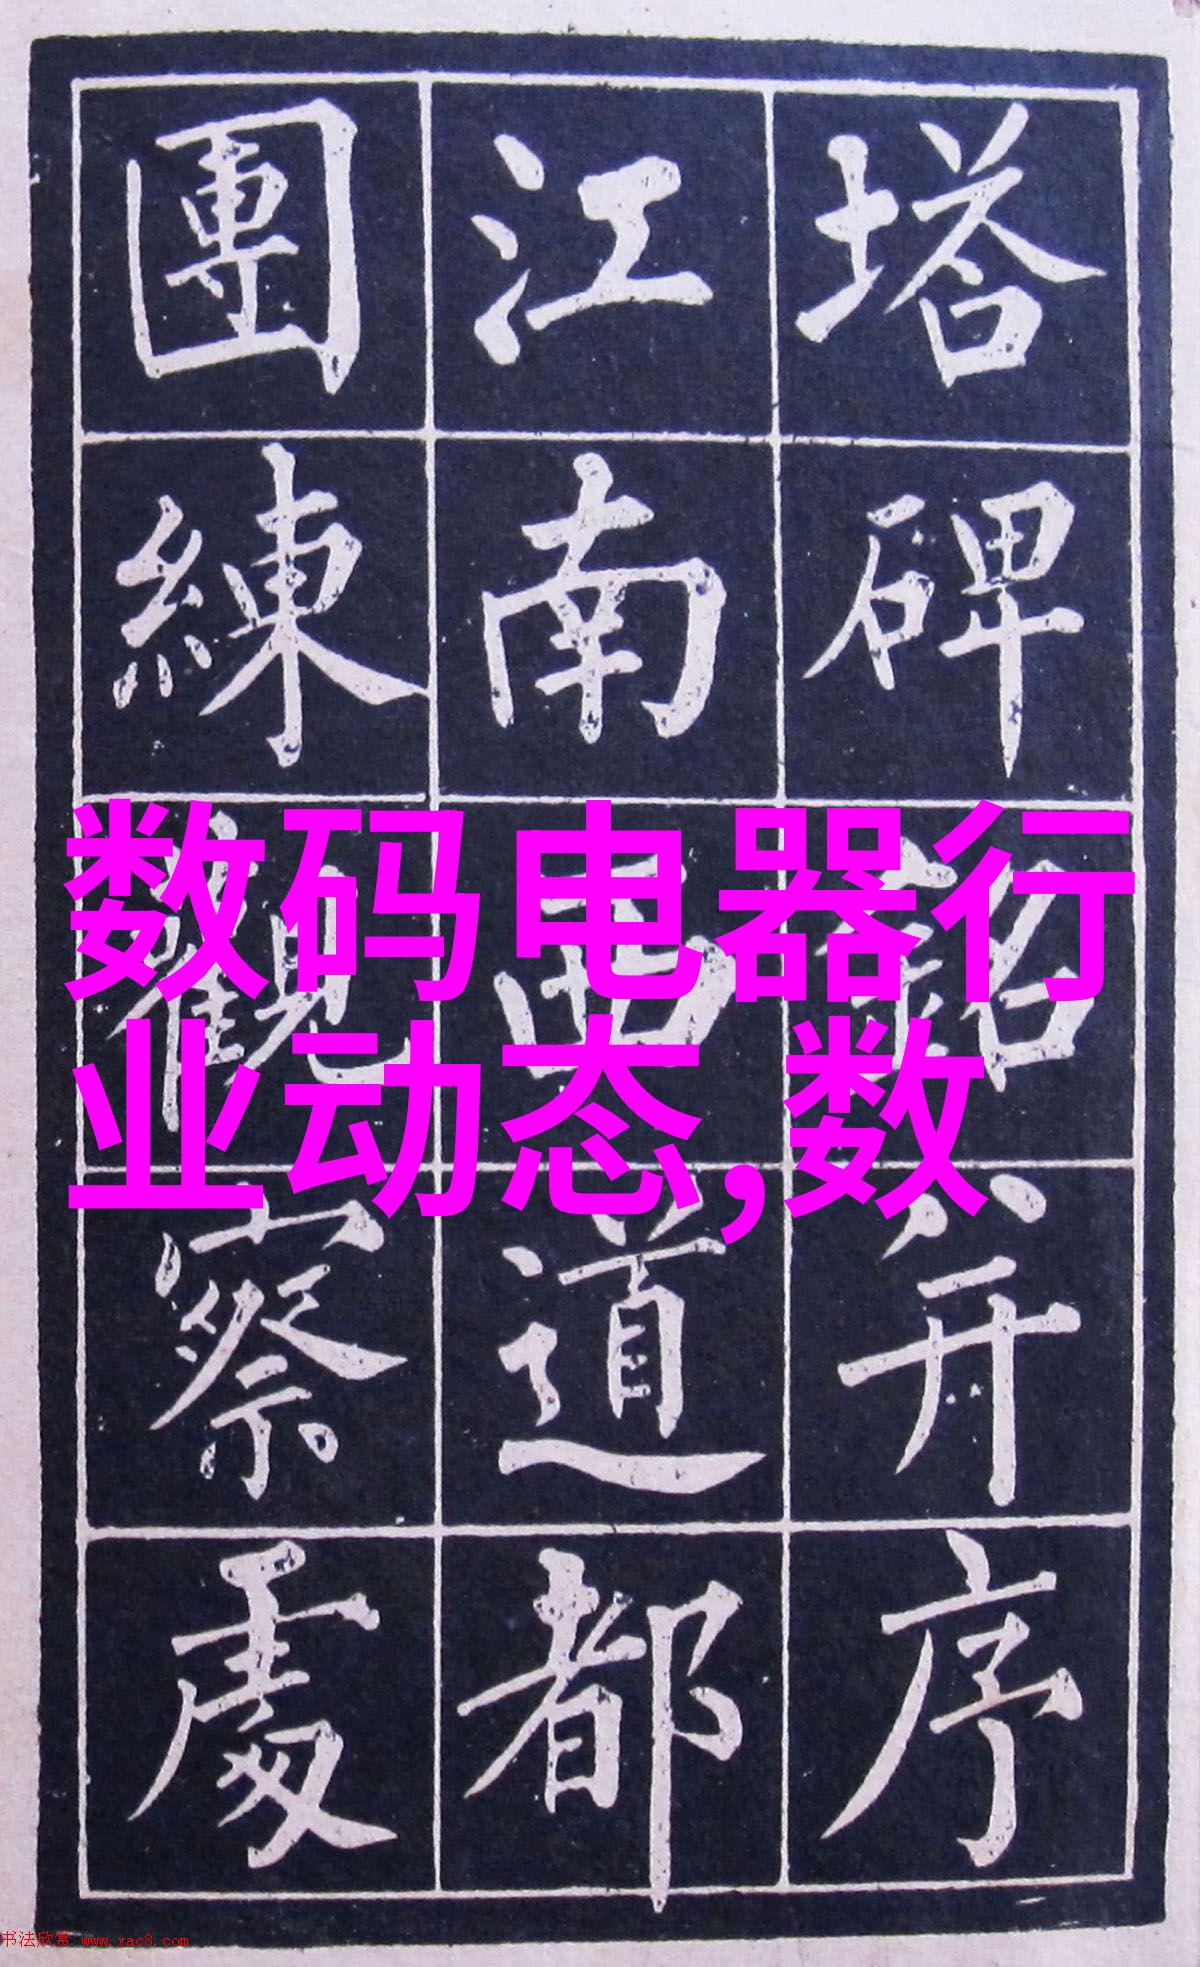 塔碑銘并序
江南西道都
團練觀察處
数码电器行
业动态,数
书法欣赏 www.yac8.com